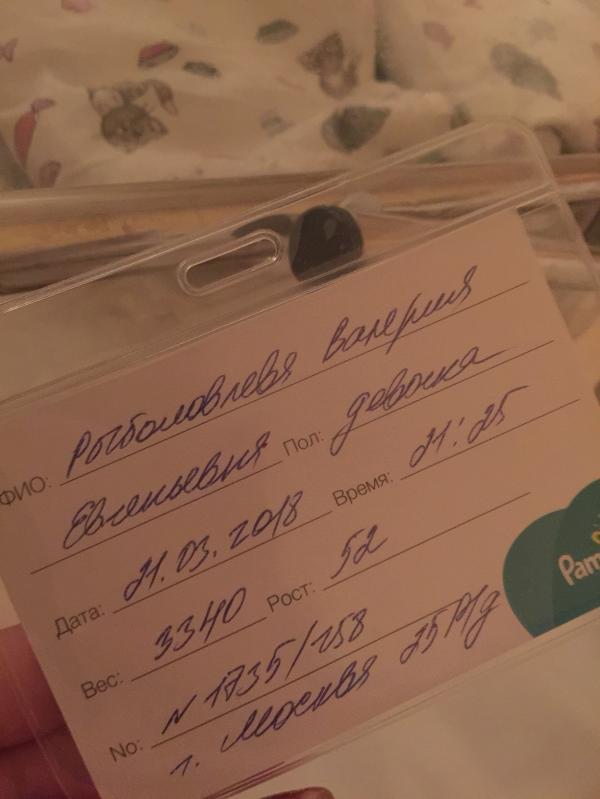 ФИО: Рыболовлевя Валерия
Евгеньевня Пол: девочка
Дата: 21.03.2018 Время: 21:25
Вес: 3340 Рост: 52
No: N 1735/158
г. Москвя 25 Р/Д
Pam